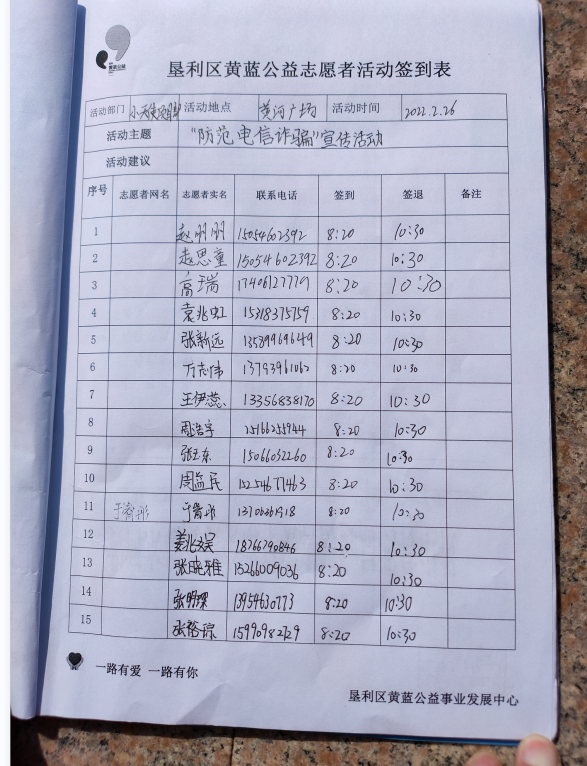 黄蓝公益
垦利区黄蓝公益志愿者活动签到表
活动部门 活动地点 黄河广场 活动时间 2022.2.26
活动主题 "防范电信诈骗"宣传活动
活动建议
序号 志愿者网名 志愿者实名 联系电话 签到 签退 备注
1 赵明明 15054602392 8:20 10:30
2 袁思童 15054602392 8:20 10:30
3 高瑞 17406127779 8:20 10:30
4 袁兆虹 15318375759 8:20 10:30
5 张新远 13589969649 8:20 10:30
6 万志伟 13793961062 8:20 10:30
7 王伊蕊 13356838170 8:20 10:30
8 周浩宇 25166255944 8:20 10:30
9 张玉东 15066032260 8:20 10:30
10 周益民 15254677463 8:20 10:30
11 于睿彤 于睿彤 8:20 10:30
12 姜兆娱 18766790846 8:20 10:30
13 张晓雅 15266009036 8:20 10:30
14 张明琛 13954630773 8:20 10:30
15 张裕琮 15990982729 8:20 10:30
一路有爱 一路有你
垦利区黄蓝公益事业发展中心